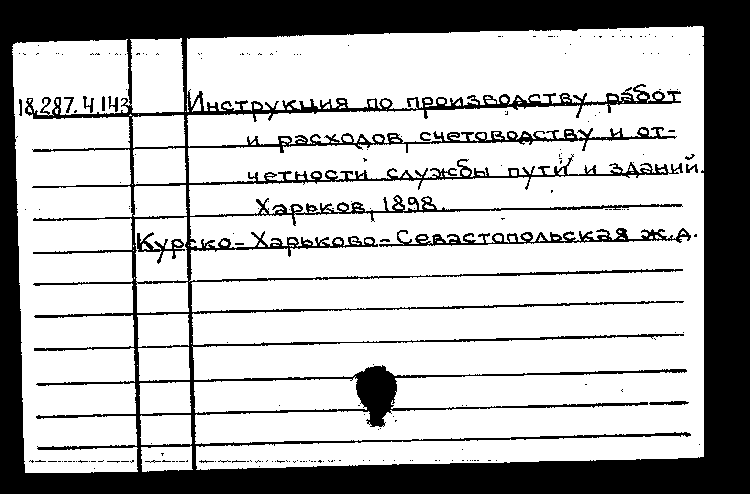 18.287.4.143 Инструкция по производству работ
и расходов, счетоводству и от-
четности службы пути и зданий.
Харьков, 1898.
Курско-Харьково-Севастопольская ж.д.